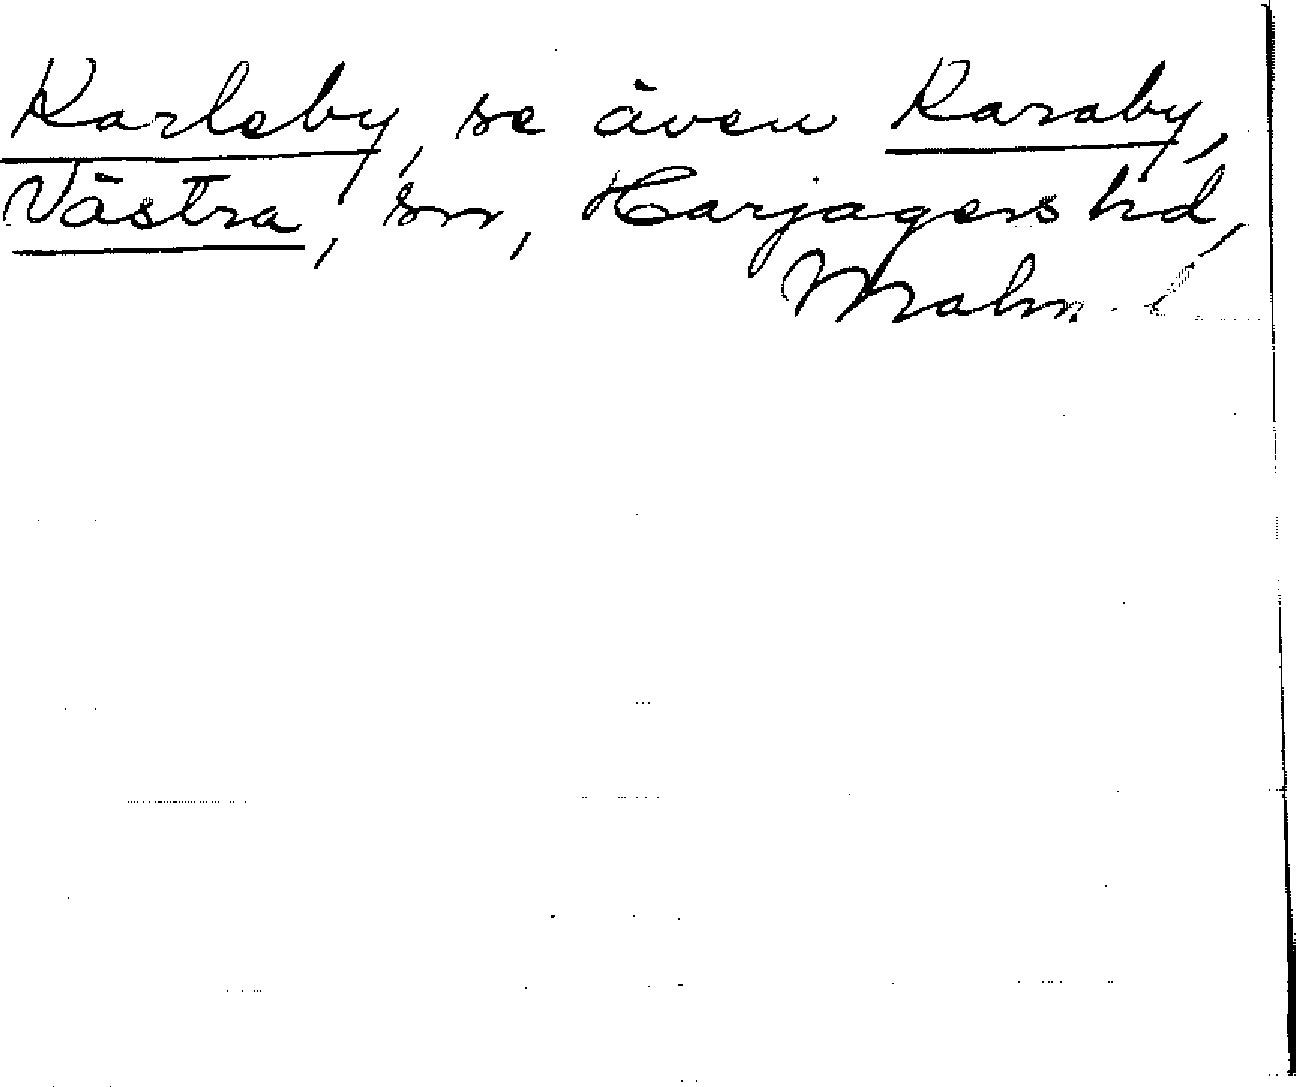 Karleby, se även Karaby,
Västra, sn, Harjagers hd,
Malm. l.